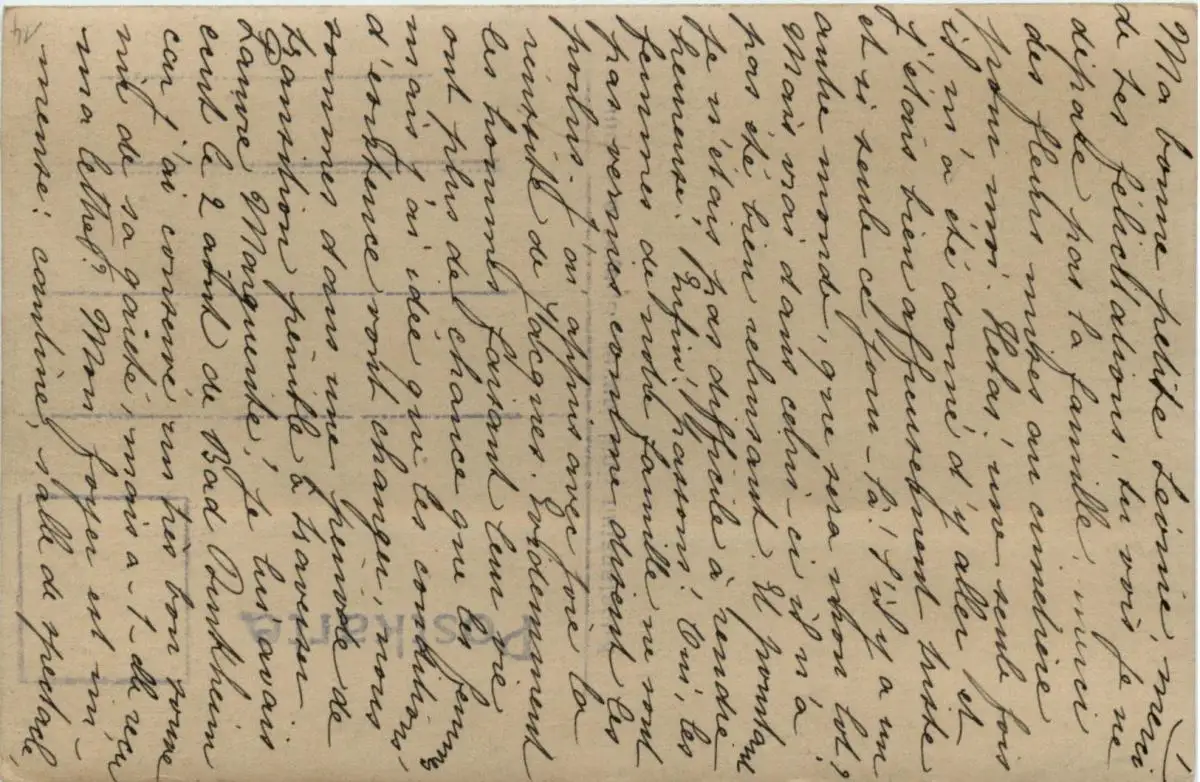 1
Ma bonne petite Léonie, merci
de tes félicitations, tu vois je ne
dépare pas la famille. merci
des fleurs mises au cimetière
pour moi. Hélas! une seule fois
il m'a été donné d'y aller et
j'étais bien affreusement triste
et si seule ce jour-là! S'il y a un
autre monde, que sera mon lot?
Mais vrai dans celui-ci il n'a
pas été bien reluisant. Et pourtant
je n'étais pas difficile à rendre
heureuse! Enfin! passons! Oui, les
femmes de notre famille ne sont
pas vernies comme disent les
poilus. J'ai appris avec joie la
réussite de Jacques. Evidemment
les hommes faisant leur vie
ont plus de chance que les femmes
mais j'ai idée que les conditions
d'existence vont changer, nous
sommes dans une période de
transition pénible à traverser.
Pauvre Marguerite! Je lui avais
écrit le 2 août de Bad Durkheim
car j'ai conservé un très bon souve
nir de sa gaieté, mais a-t-elle reçu
ma lettre? Mon foyer est im-
mense: cantine, salle de spectacle,
14
Postkarte